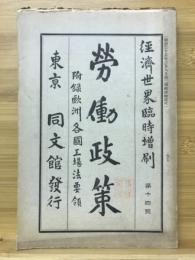 經濟世界臨時增刷
第十四號
勞働政策
附錄歐洲各國工場法要領
東京 同文館發行